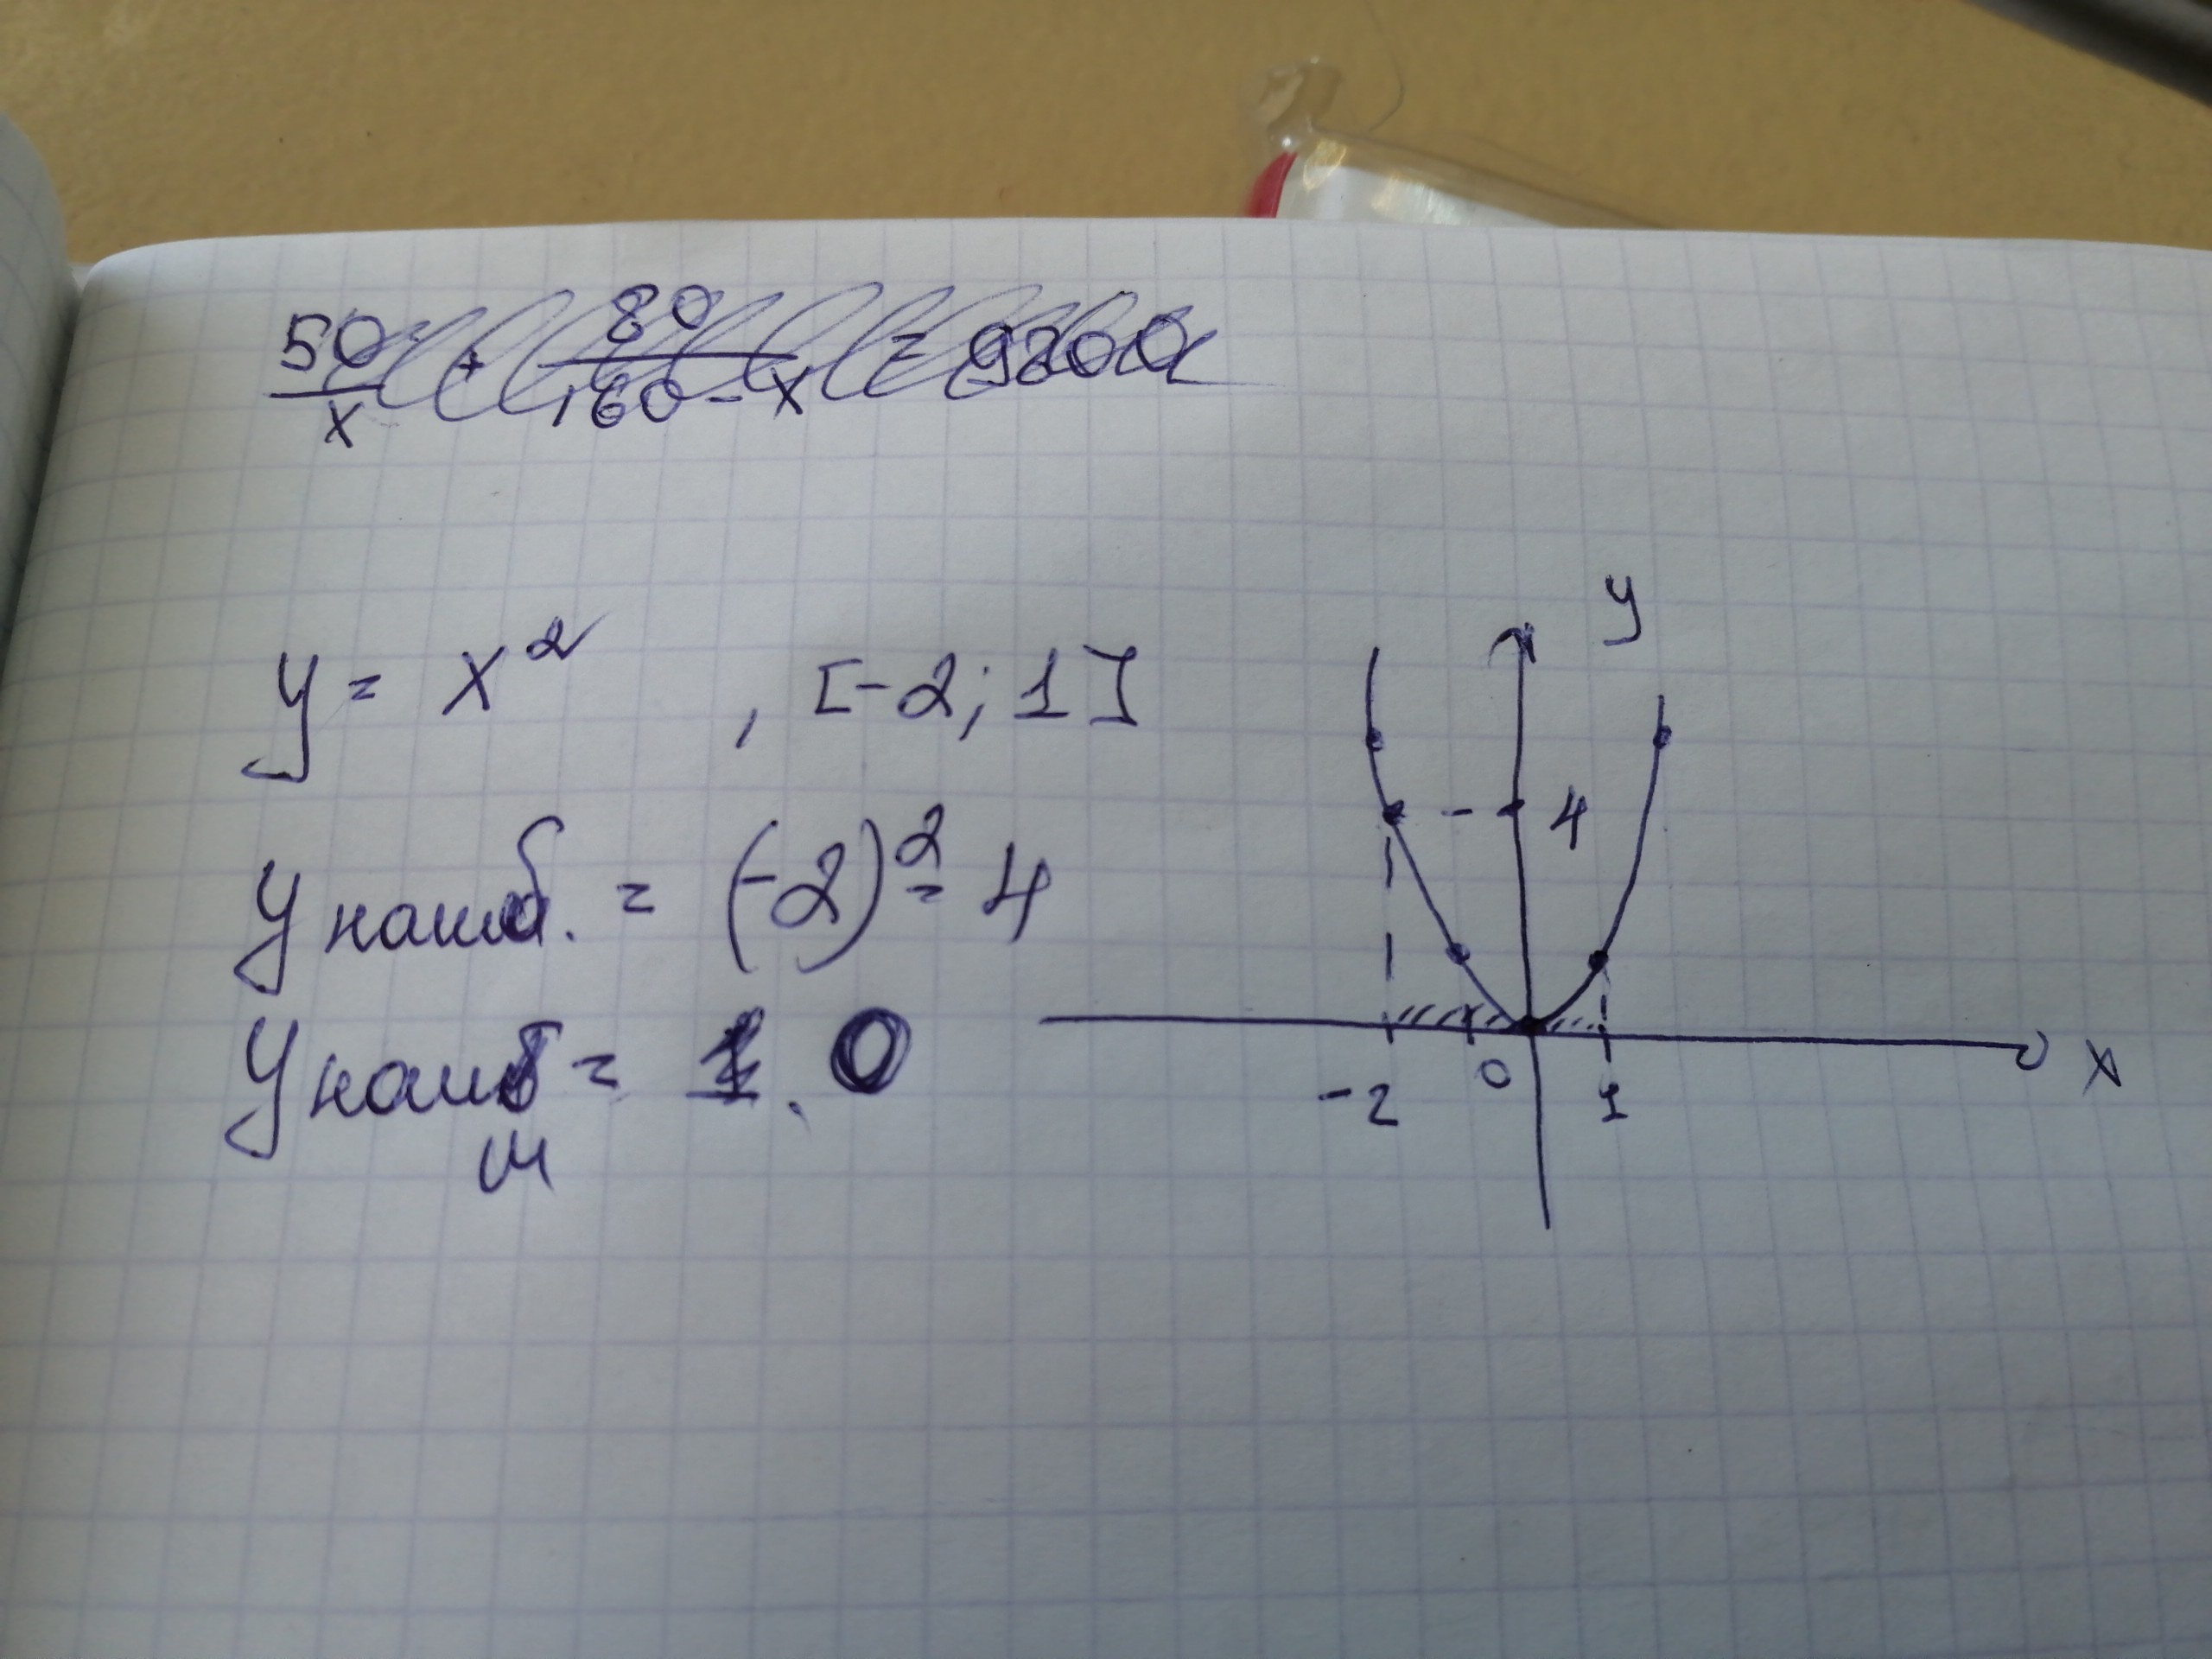 50/x + 80/160-x = 9200
y = x² , [-2; 1]
y наиб. = (-2)² = 4
y наиб = 1. 0
м
y
4
-2 0 1 x